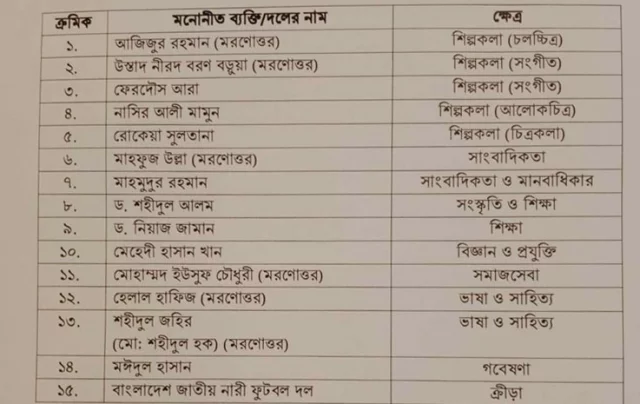 ক্রমিক মনোনীত ব্যক্তি/দলের নাম ক্ষেত্র
১. আজিজুর রহমান (মরণোত্তর) শিল্পকলা (চলচ্চিত্র)
২. উস্তাদ নীরদ বরণ বড়ুয়া (মরণোত্তর) শিল্পকলা (সংগীত)
৩. ফেরদৌস আরা শিল্পকলা (সংগীত)
৪. নাসির আলী মামুন শিল্পকলা (আলোকচিত্র)
৫. রোকেয়া সুলতানা শিল্পকলা (চিত্রকলা)
৬. মাহফুজ উল্লা (মরণোত্তর) সাংবাদিকতা
৭. মাহমুদুর রহমান সাংবাদিকতা ও মানবাধিকার
৮. ড. শহীদুল আলম সংস্কৃতি ও শিক্ষা
৯. ড. নিয়াজ জামান শিক্ষা
১০. মেহেদী হাসান খান বিজ্ঞান ও প্রযুক্তি
১১. মোহাম্মদ ইউসুফ চৌধুরী (মরণোত্তর) সমাজসেবা
১২. হেলাল হাফিজ (মরণোত্তর) ভাষা ও সাহিত্য
১৩. শহীদুল জহির ভাষা ও সাহিত্য
(মো: শহীদুল হক) (মরণোত্তর)
১৪. মঈদুল হাসান গবেষণা
১৫. বাংলাদেশ জাতীয় নারী ফুটবল দল ক্রীড়া